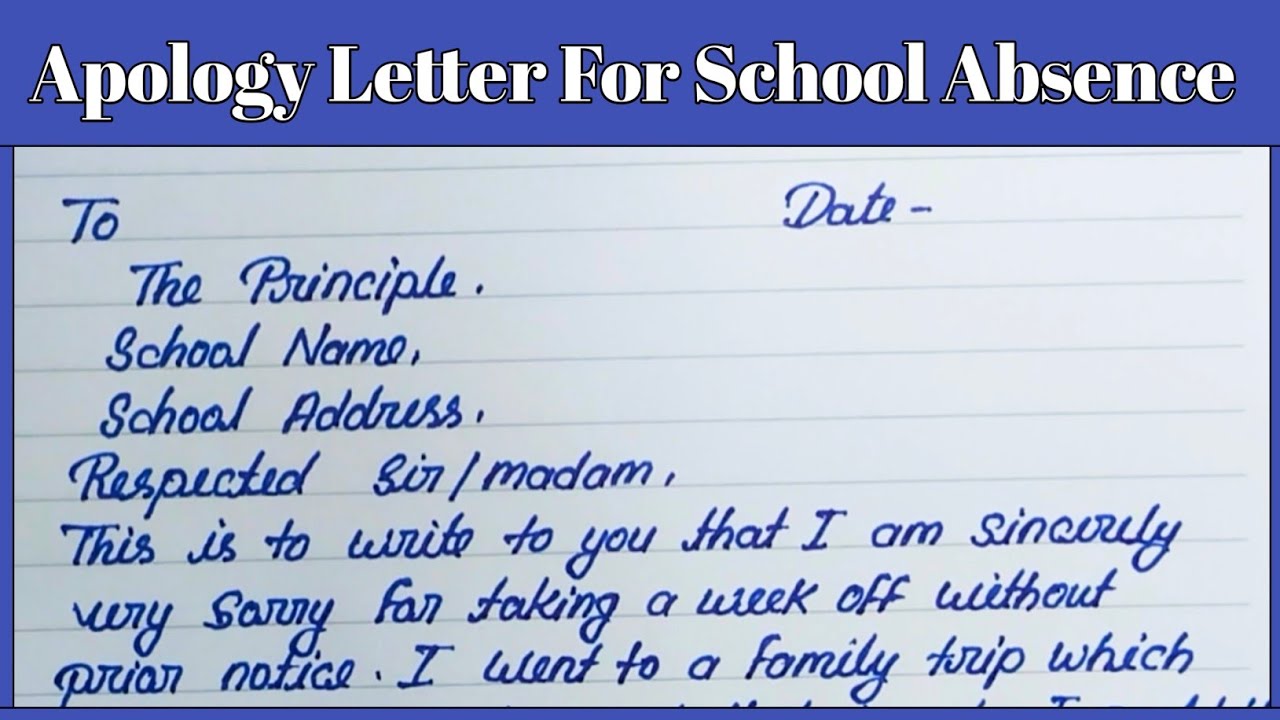 Apology Letter For School Absence
To Date -
The Principle.
School Name,
School Address.
Respected Sir/madam,
This is to write to you that I am sincerely
very sorry for taking a week off without
prior notice. I went to a family trip which